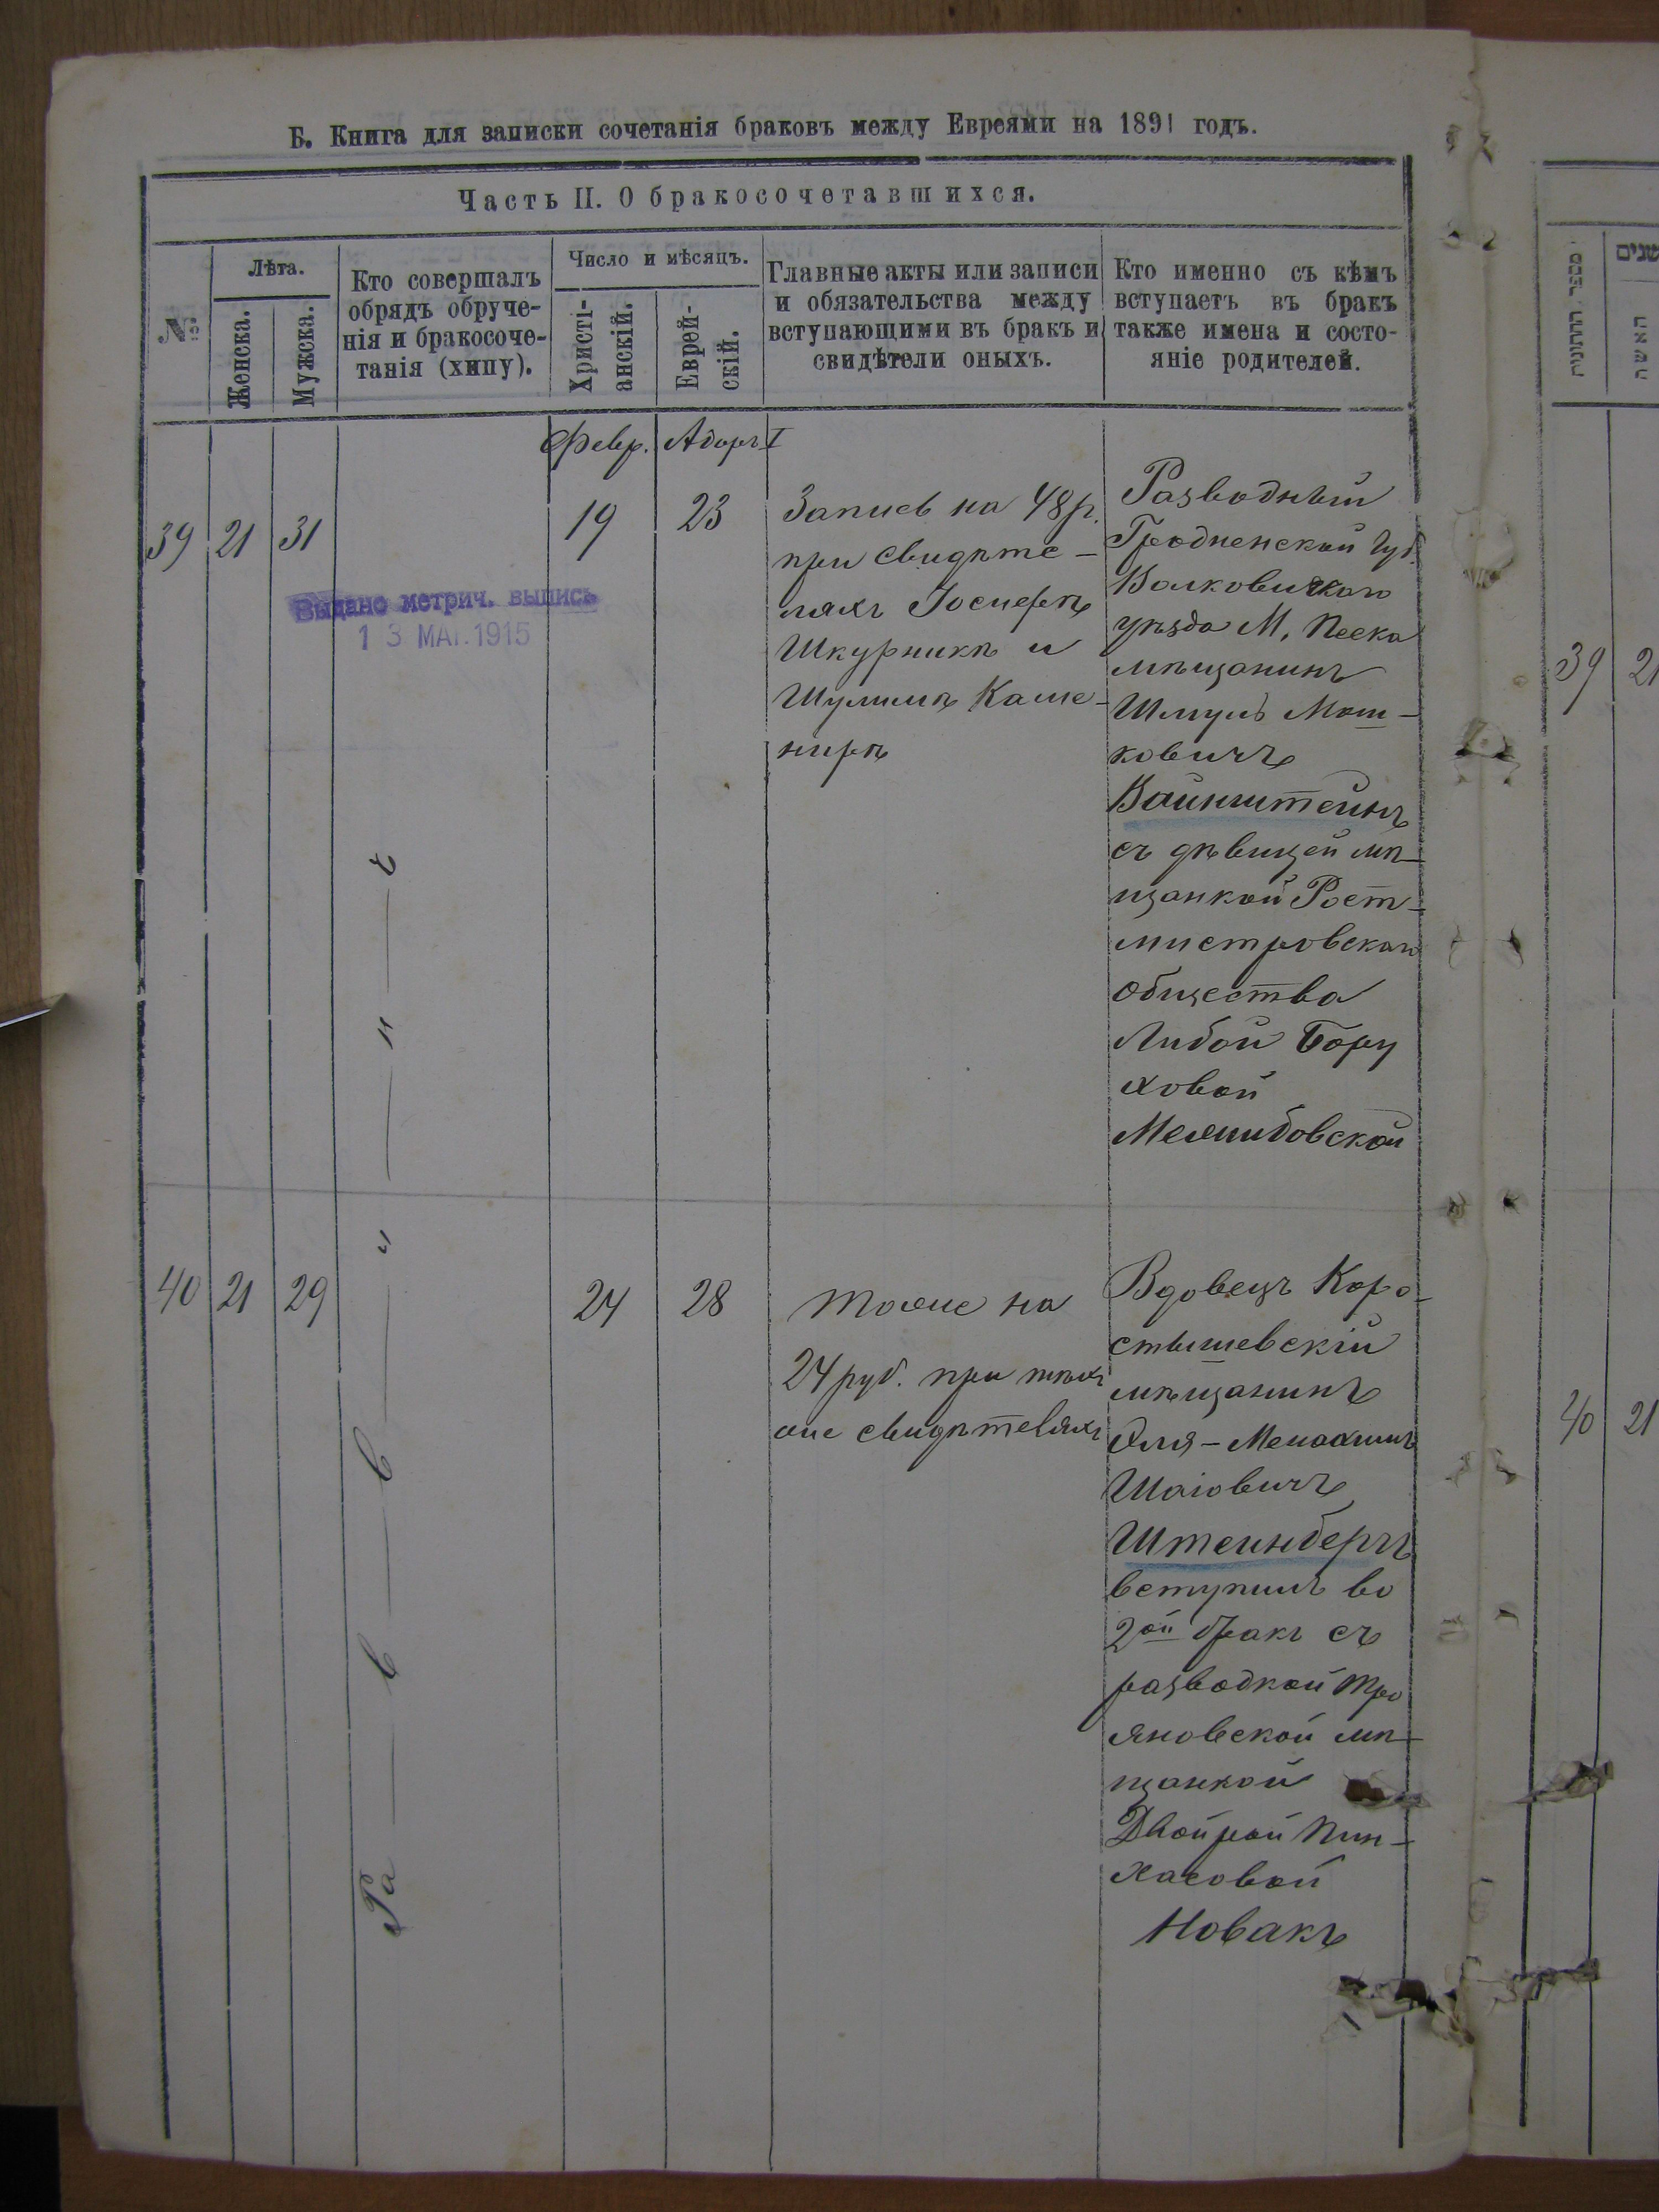 Б. Книга для записки сочетанія браковъ между Евреями на 1891 годъ.
Часть II. О бракосочетавшихся.
№
Лѣта.
Женска.
Мужска.
Кто совершалъ
обрядъ обруче-
нія и бракосоче-
танія (хипу).
Число и мѣсяцъ.
Христі-
анскій.
Еврей-
скій.
Главные акты или записи
и обязательства между
вступающими въ бракъ и
свидѣтели оныхъ.
Кто именно съ кѣмъ
вступаетъ въ бракъ
также имена и состо-
яніе родителей.
Февр. Адаръ I
39 21 31
19 23
Выдано метрич. выпись
1 3 МАІ. 1915
Запись на 48 р.
при свидѣте-
ляхъ Іосиფѣ
Шкурникѣ и
Шулимѣ Каше-
нирѣ
Разводный
Гродненской Губ.
Волковискаго
уѣзда М. Песка
мѣщанинъ
Шмуль Мош-
ковичъ
Вайнштейнъ
съ дѣвицей мѣ-
щанкой Рот-
мистровскаго
общества
Либой Бору
ховой
Межибовской
40 21 29
24 28
Тоже на
24 руб. при тѣхъ
же свидѣтеляхъ
Вдовецъ Коро-
стышевскій
мѣщанинъ
Эля-Менахимъ
Шаіовичъ
Штейнбергъ
вступилъ во
2ой бракъ съ
разводкой Тро
яновской мѣ-
щанкой
Двойрой Пин-
хасовой
Новакъ
Ра в в и н ъ
מספר החתונות
שנים
האשה
39 21
40 21